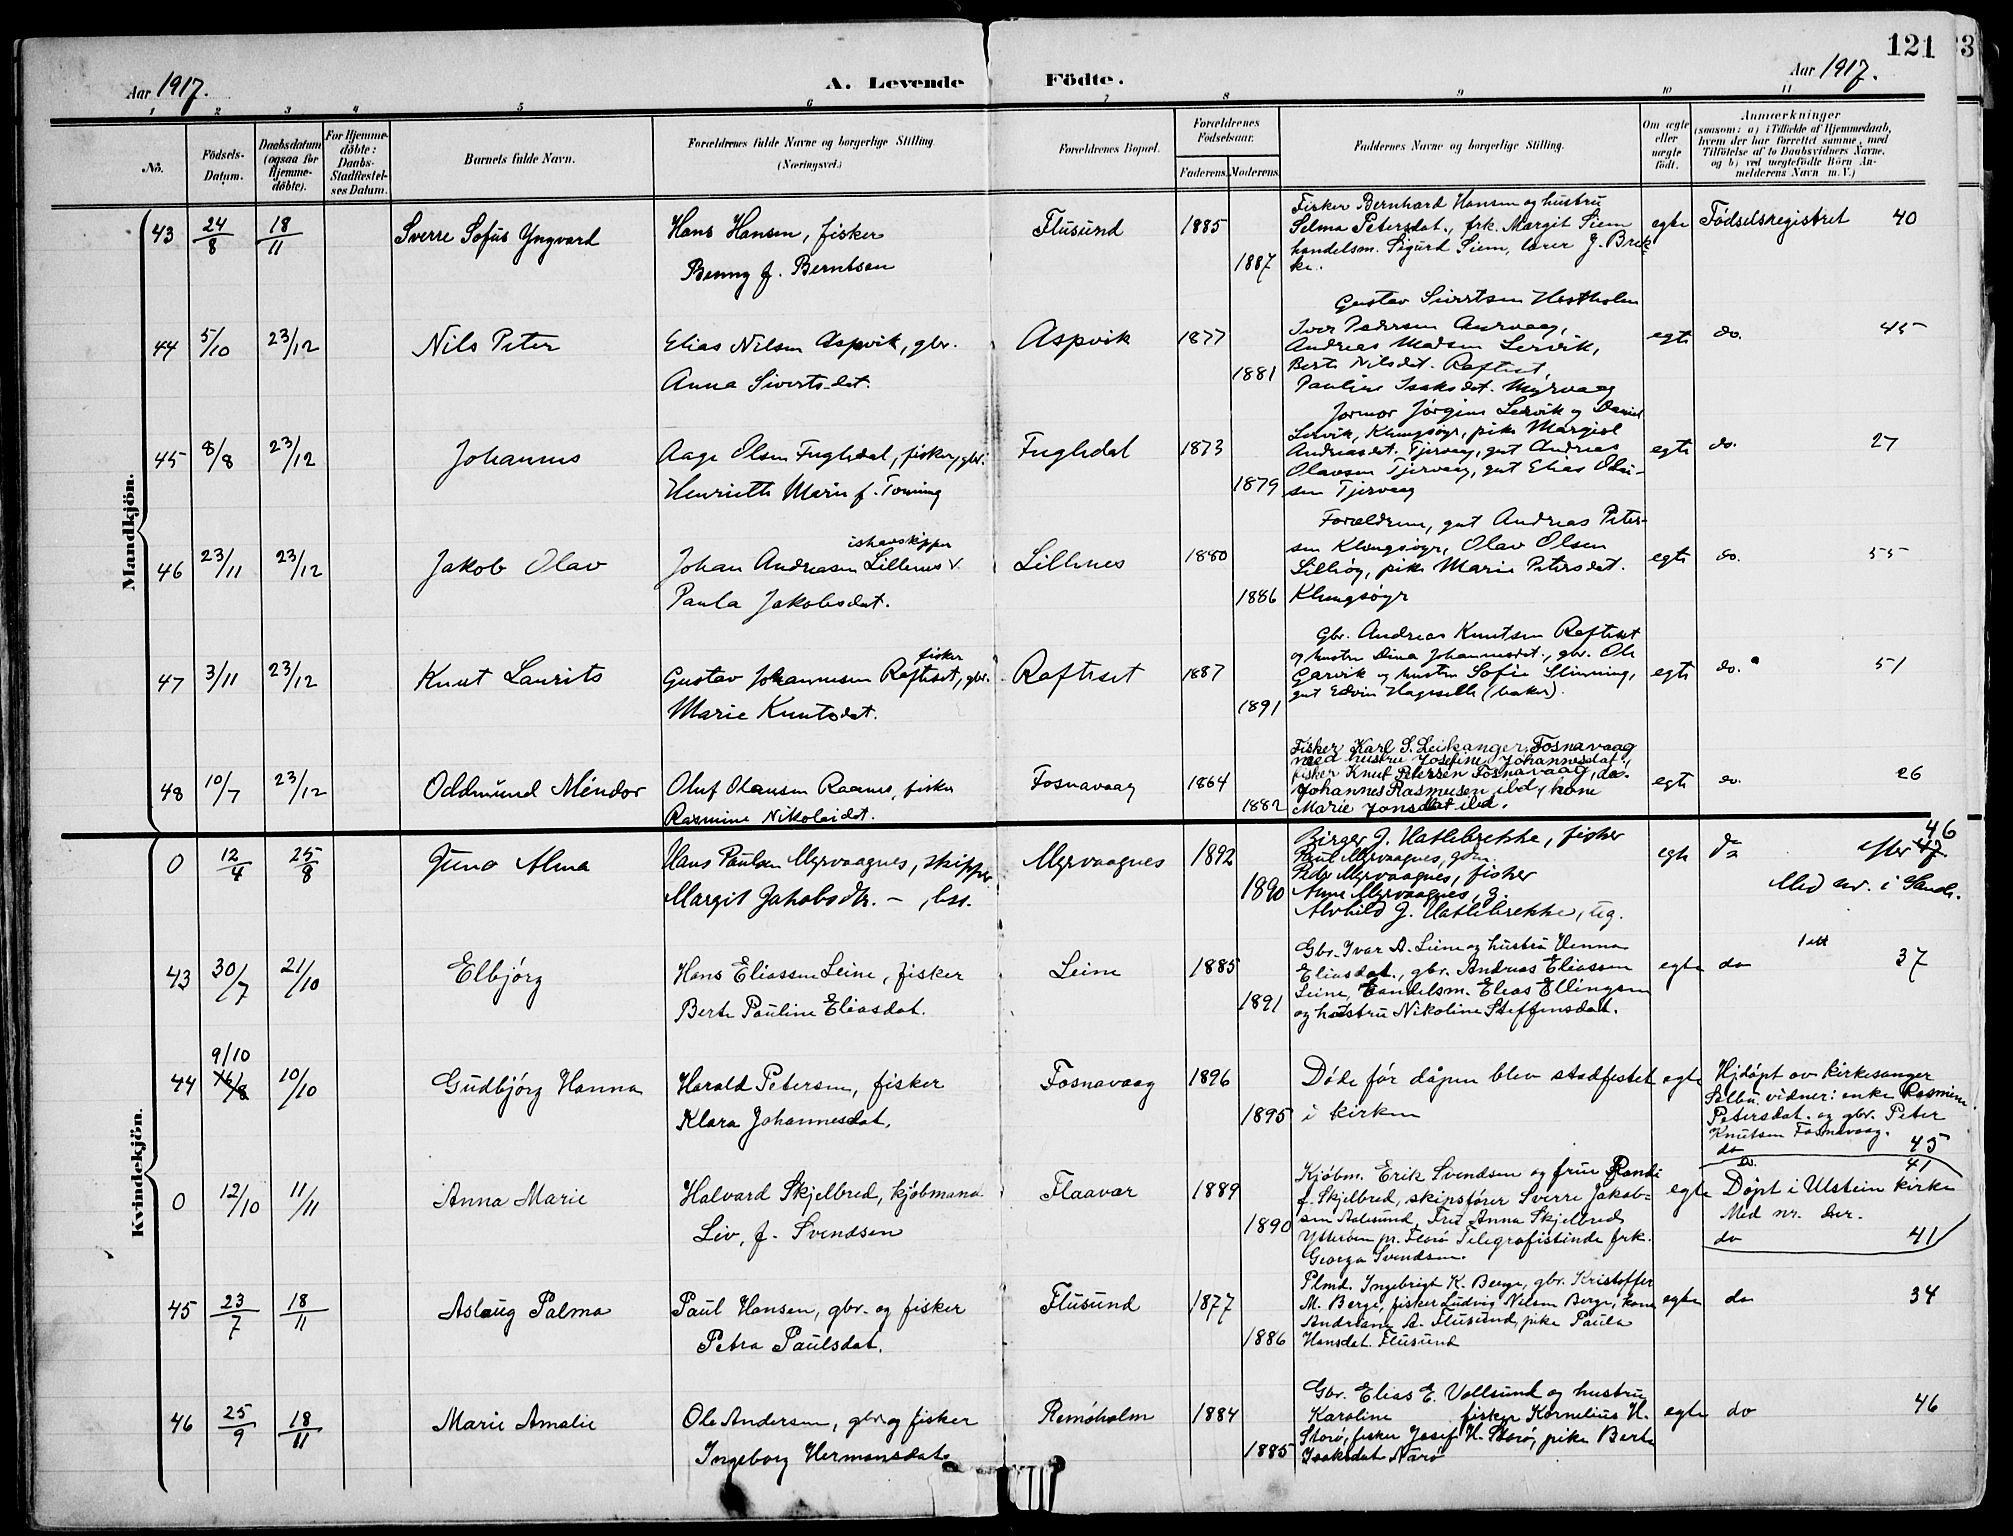 121
3
Aar 1917.
A. Levende Födte.
Aar 1917.
1 2 3 4 5 6 7 8 9 10 11
No.
Födsels-Datum.
Daabsdatum (ogsaa for Hjemme-döbte).
For Hjemme-döbte: Daabs-Stadfæstel-ses Datum.
Barnets fulde Navn.
Forældrenes fulde Navne og borgerlige Stilling. (Næringsvei.)
Forældrenes Bopæl.
Forældrenes Födselsaar.
Faderens. Moderens.
Faddernes Navne og borgerlige Stilling.
Om ægte eller uægte födt.
Anmærkninger
(saasom: a) i Tilfælde af Hjemmedaab, hvem der har forrettet samme, med Tilföielse af to Daabsvidners Navne, og b) ved uægtefödte Börn An-melderens Navn m. V.)
Mandkjön.
43 24/8 18/11 Sverre Sofus Yngvard
Hans Hansen, fisker
Benny f. Berntsen
Flusund 1885
1887
Fisker Bernhard Hansen og hustru
Selma Petersdat., frk. Margit Siem
handelsm. Sigurd Siem, lærer J. Brek-
ke.
egte Fødselsregistret 40
44 5/10 23/12 Nils Peter
Elias Nilsen Aspvik, gbr.
Anna Sivertsdat.
Aspvik 1877
1881
Gustav Sivertsen Hestholm
Iver Pedersen Aurvaag,
Andreas Madsen Lervik,
Berte Nilsdat. Raftset,
Pauline Isaksdat. Myrvaag
egte do. 45
45 8/8 23/12 Johannes
Aage Olsen Fugledal, fisker, gbr.
Henriette Marie f. Torning
Fugledal 1873
1879
Jormor Jørgine Lervik og Daniel
Lervik, Klungsøyr, pike Margido
Andreasdat. Tjervaag, gut Andreas
Olavsen Tjervaag, gut Elias Olau-
sen Tjervaag
egte do. 27
46 23/11 23/12 Jakob Olav
ishavskipper
Johan Andreasen Lillenes
Paula Jakobsdat.
Lillenes 1880
1886
Forældrene, gut Andreas Peter-
sen Klungsøyr, Olav Olsen
Lillsøy, pike Marie Petersdat.
Klungsøyr
egte do. 55
47 3/11 23/12 Knut Laurits
fisker
Gustav Johannesen Rafteset, gbr.
Marie Knutsdat.
Rafteset 1887
1891
Gbr. Andreas Knutsen Rafteset
og hustru Dina Johannesdat., gbr. Ole
Garvik og hustru Sofie Slinning,
gut Edvin Hageselle (baker).
egte do. 51
48 10/7 23/12 Oddmund Méndor
Oluf Olausen Raanes, fisker
Rasmine Nikolaidat.
Fosnavaag 1864
1882
Fisker Karl S. Leikanger, Fosnavaag
med hustru Josefine Johannesdat.,
fisker Knut Petersen Fosnavaag, do.
Johannes Rasmusen ibd, kone
Marie Jonsdat ibd.
egte do. 26
Kvindekjön.
0 12/4 25/8 Juno Alma
Hans Paulsen Myrvaagnes, skipper
Margit Jakobsdtr. – , hst.
Myrvaagnes 1892
1890
Birger J. Hatlebrekke, fisker
Paul Myrvaagnes, gdm.
Peder Myrvaagnes, fisker
Anne Myrvaagnes, g.
Alvhild J. Hatlebrekke, ug.
egte do efter 47 46
Med nr. i Sande.
43 30/7 21/10 Elbjørg
Hans Eliassen Leine, fisker
Berte Pauline Eliasdat.
Leine 1885
1891
Gbr. Ivar A. Leine og hustru Hanna
Eliasdat., gbr. Andreas Eliassen
Leine, handelsm. Elias Ellingsen
og hustru Nikoline Steffensdat.
egte do 37
44 9/10 16/8 10/10 Gudbjørg Hanna
Harald Petersen, fisker
Klara Johannesdat.
Fosnavaag 1896
1895
Døde før dåpen blev stadfestet
i kirken
egte Hjdøpt av kirkesanger
Selbu. vidner: enke Rasmine
Petersdat. og gbr. Peter
Knutsen Fosnavaag.
do 45
0 12/10 11/11 Anna Marie
Halvard Skjelbred, kjøbmand
Liv, f. Svendsen
Flaavær 1889
1890
Kjøbm. Erik Svendsen og frue Randi
f. Skjelbred, skipsfører Sverre Jakob-
sen Aalesund, Fru Anna Skjelbred
Ytterøen pr. Florø Telegrafistinde frk.
Georga Svendsen.
egte do. 41
Døpt i Ulstein kirke
Med nr. der.
do 41
45 23/7 18/11 Aslaug Palma
Paul Hansen, gbr. og fisker
Petra Paulsdat.
Flusund 1877
1886
Plmd. Ingebrigt K. Berge, gbr. Kristoffer
M. Berge, fisker Ludvig Nilsen Berge, kone
Andriane A. Flusund, pike Paula
Hansdat. Flusund
egte do 34
46 25/9 18/11 Marie Amalie
Ole Andersen, gbr og fisker
Ingeborg Hermansdat.
Remøholm 1884
1885
Gbr. Elias E. Vollsund og hustru
Karoline fisker Kornelius H.
Storø, fisker Josef H. Storø, pike Berte
Isaksdat Nærø
egte do 46